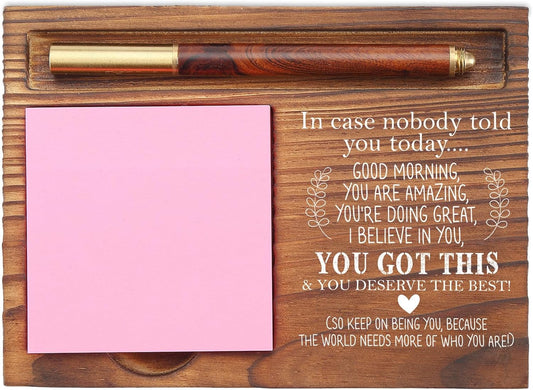 In case nobody told
you today....
GOOD MORNING,
YOU ARE AMAZING,
YOU'RE DOING GREAT,
I BELIEVE IN YOU,
YOU GOT THIS
& YOU DESERVE THE BEST!
(SO KEEP ON BEING YOU, BECAUSE
THE WORLD NEEDS MORE OF WHO YOU ARE!)